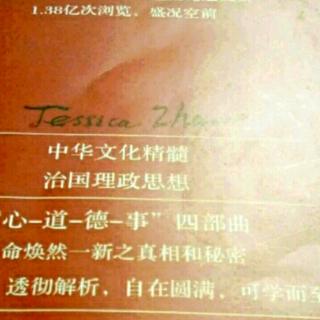 1.38亿次浏览，盛况空前
Jessica
中华文化精髓
治国理政思想
"心-道-德-事"四部曲
命焕然一新之真相和秘密
透彻解析，自在圆满，可学而至